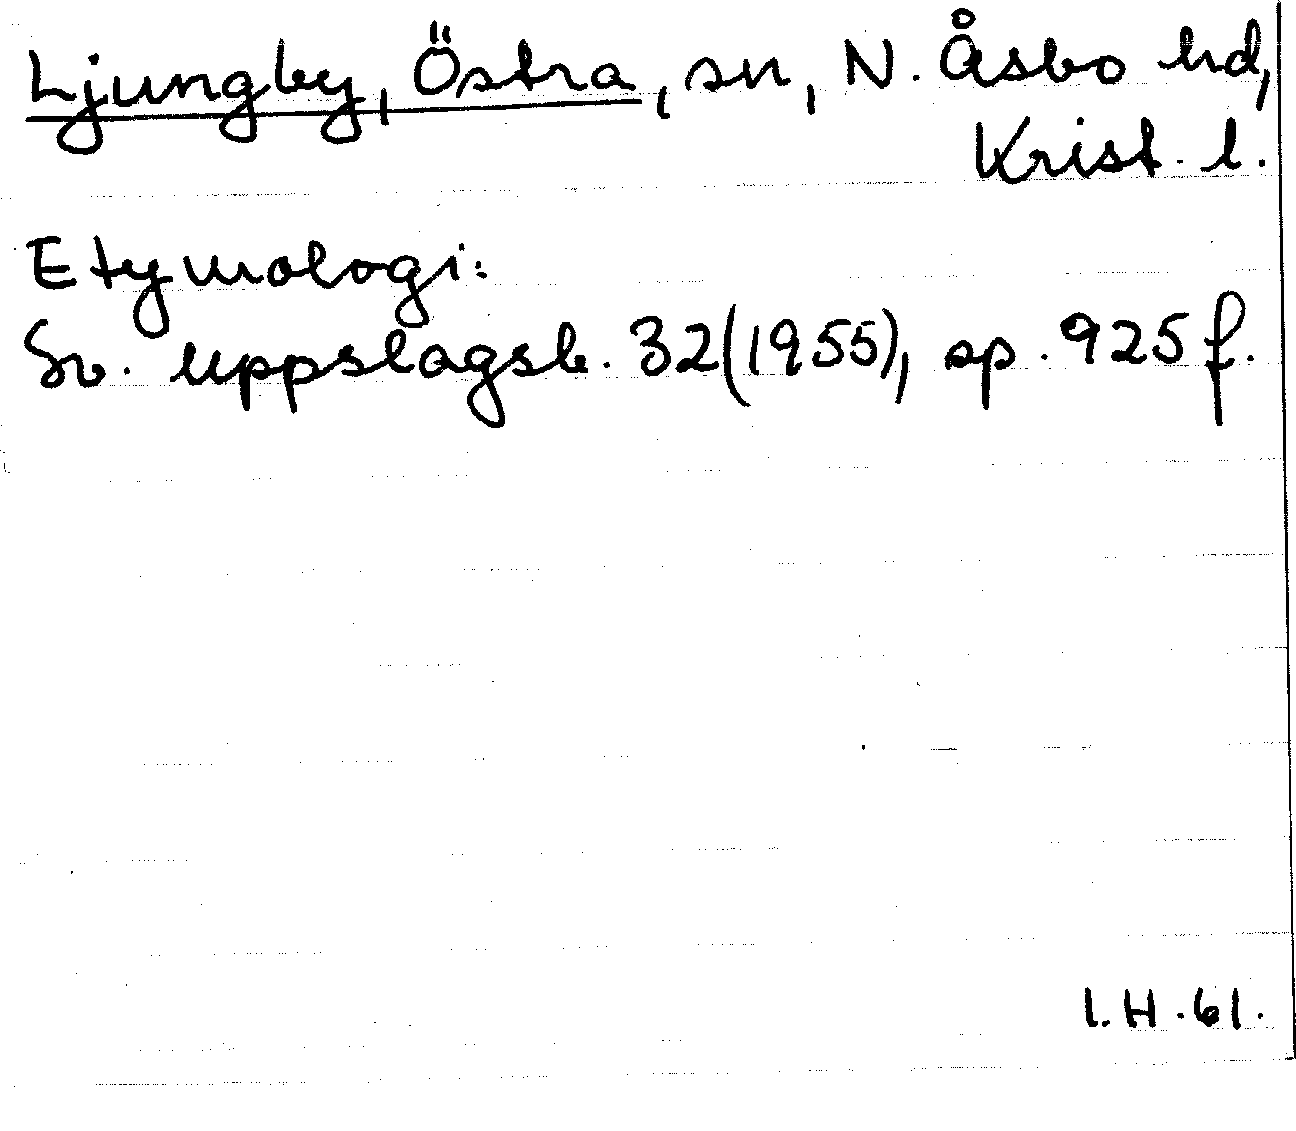 Ljungby, Östra, sn, N. Åsbo hd,
Krist. l.
Etymologi:
Sv. uppslagsb. 32(1955), sp. 925 f.
I. H. 61.